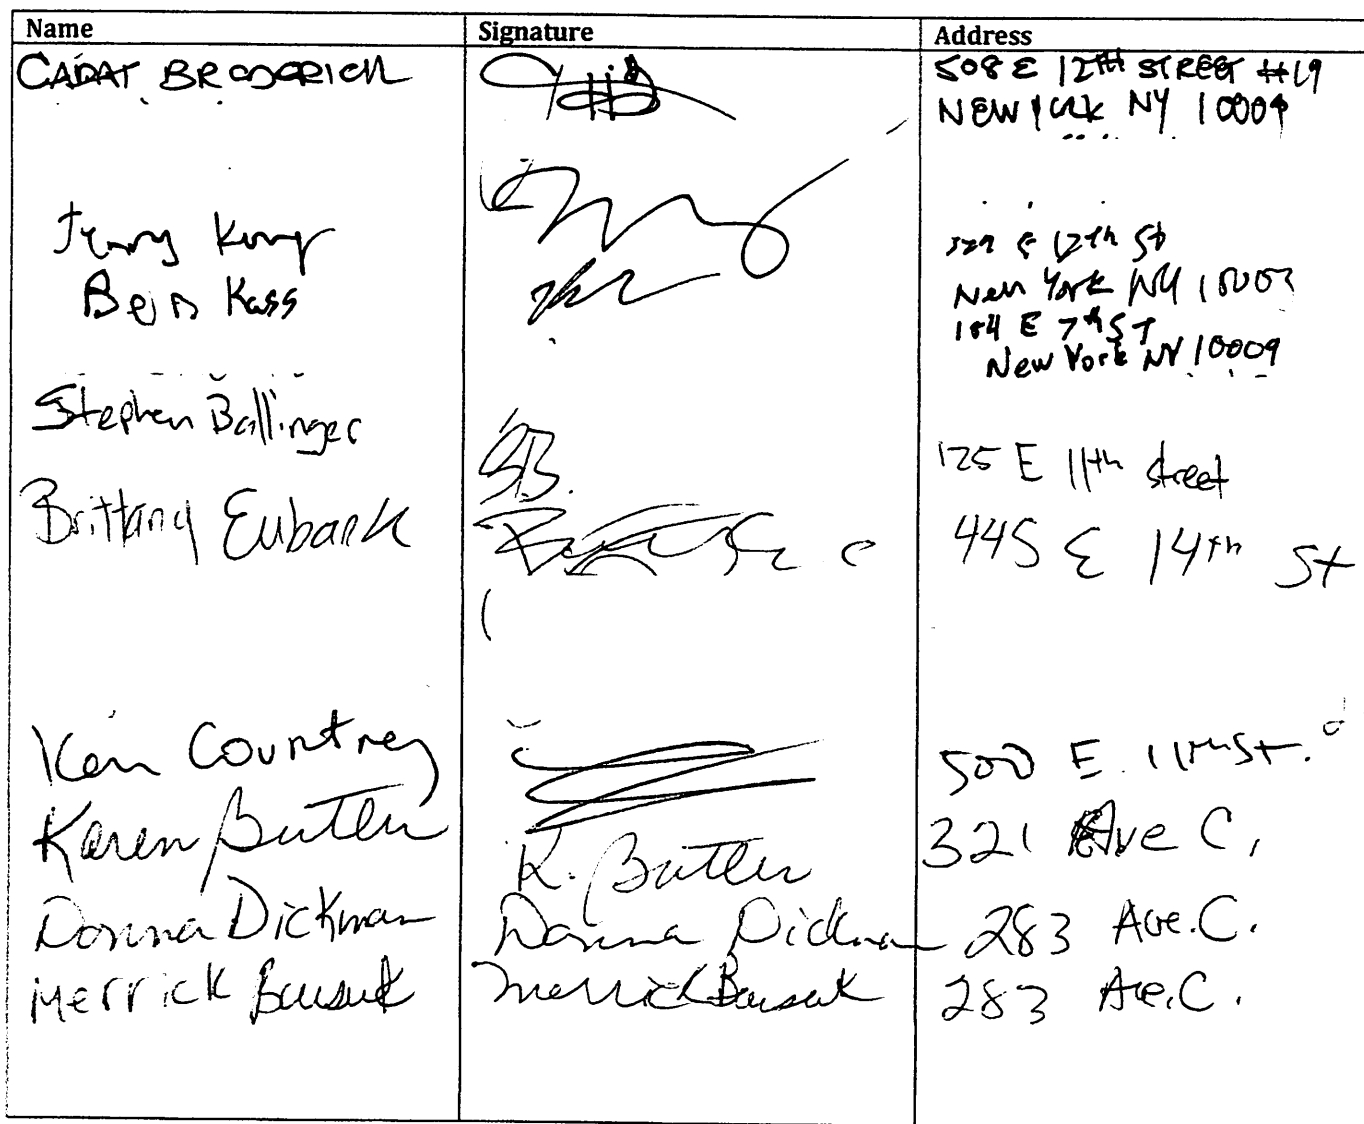 Name Signature Address
BRODERICK 508 E 12TH STREET #19
NEW YORK NY 10009
Jenny 329 E 12th St
New York NY 10003
Kass 184 E 7th ST
New York NY 10009
Stephen Ballinger SB. 125 E 11th street
Brittany Eubank 445 E 14th St
Ken Countney 500 E 11th St.
Karen Butler K. Butler 321 Ave C,
Donna Dickman Donna Dickman 283 Ave. C.
Merrick Merrick 283 Ave. C.